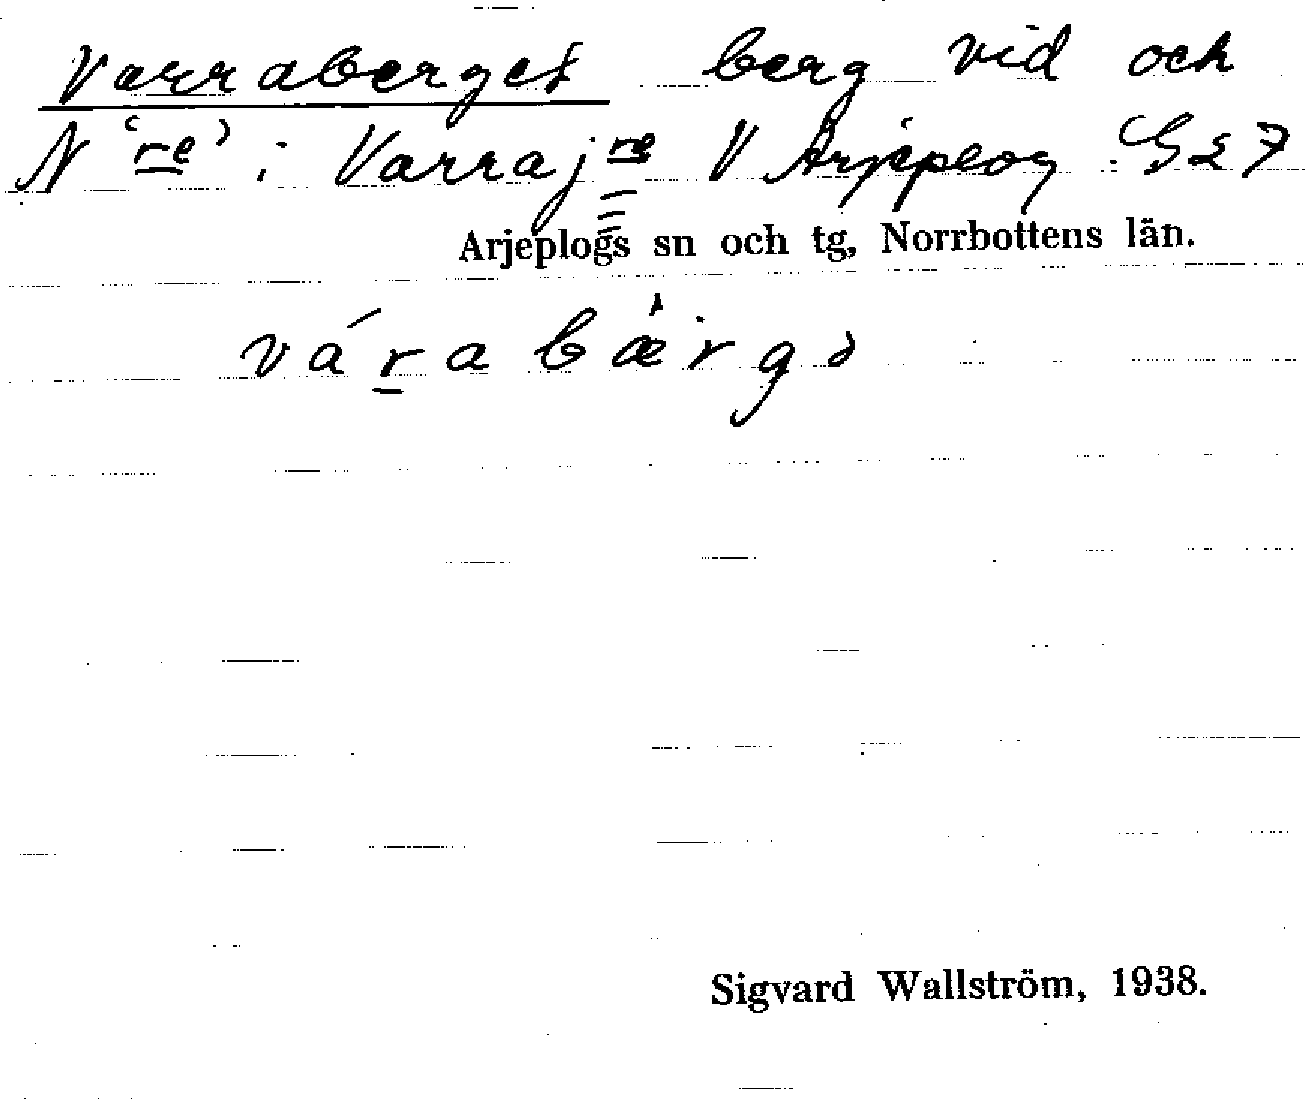 Varraberget berg vid och
N (re) i Varraj re V Arjeplog G27
Arjeplogs sn och tg, Norrbottens län.
várabæ̀rgə
Sigvard Wallström, 1938.